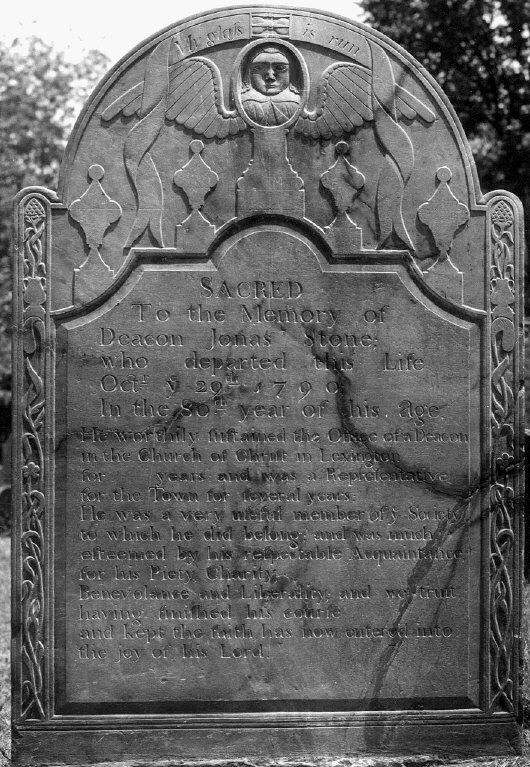 My glaſs is run
SACRED
To the Memory of
Deacon Jonas Stone;
who departed this Life
Octr. ẙ 29th 1790
In the 80th year of his age.
He worthily ſuſtained the Office of a Deacon
in the Church of Chriſt in Lexington
for years and was a Repreſentative
for the Town for ſeveral years:
He was a very uſeful member of ẙ Society
to which he did belong; and was much
eſteemed by his reſpectable Acquaintance
for his Piety, Charity,
Benevolance and Liberality, and we truſt
having finiſhed his courſe
and kept the faith has now entered into
the joy of his Lord.